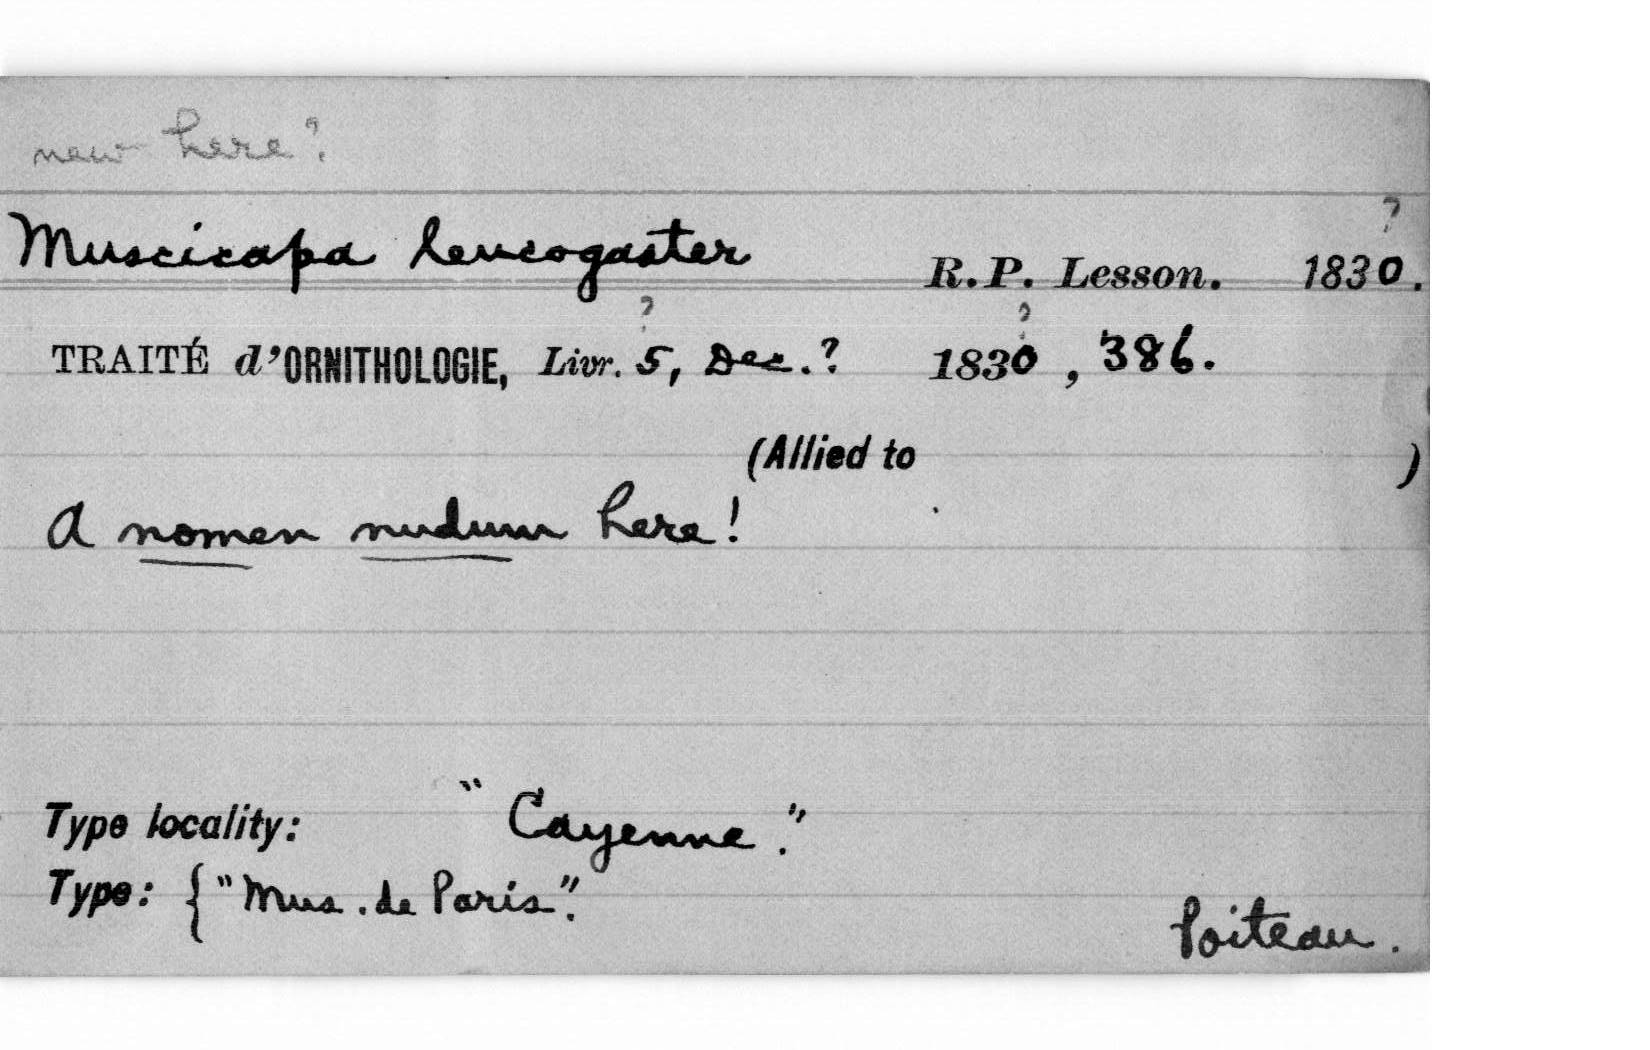 new here?
Muscicapa leucogaster R.P. Lesson. 1830?.
TRAITÉ d'ORNITHOLOGIE, Livr. 5?, Dec.? 1830?, 386.
(Allied to )
A nomen nudum here!
Type locality: "Cayenne."
Type: {"Mus. de Paris".
Poiteau.